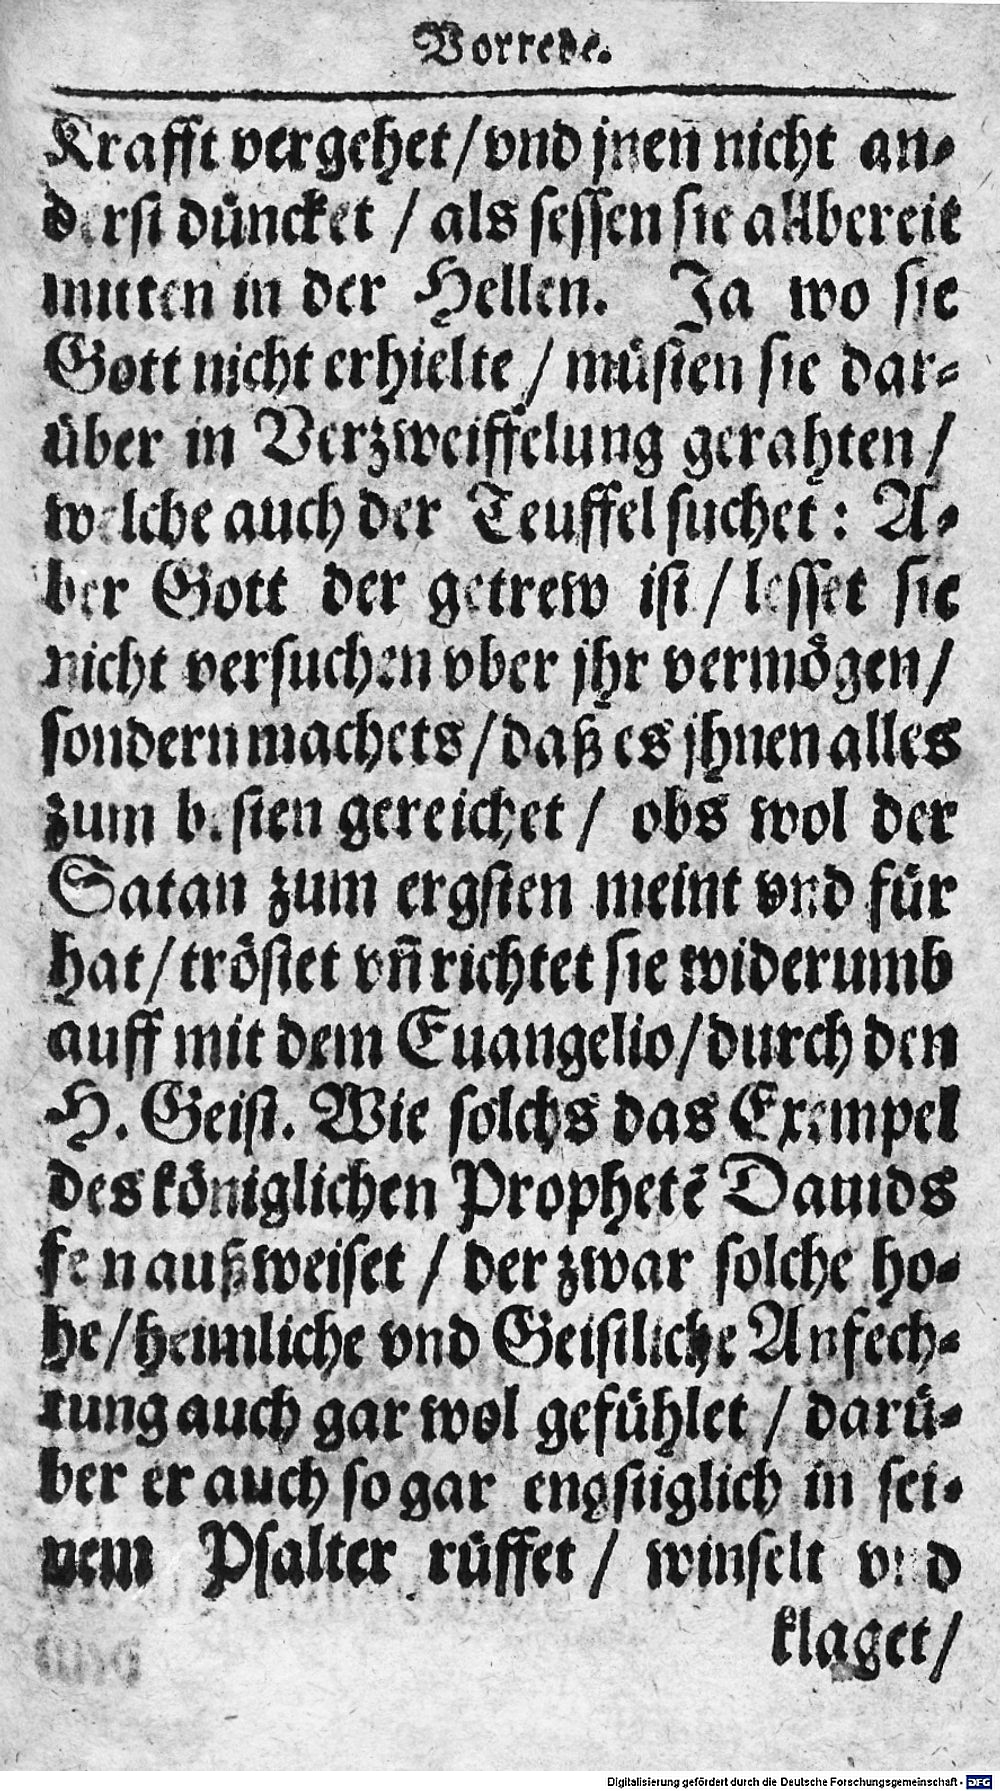 Vorrede.
Krafft vergehet/ vnd jnen nicht an-
derst düncket / als sessen sie allbereit
mitten in der Hellen. Ja wo sie
Gott nicht erhielte / müsten sie dar-
über in Verzweiffelung gerahten /
welche auch der Teuffel suchet : A-
ber Gott der getrew ist / lesset sie
nicht versuchen vber jhr vermögen/
sondern machets/ daß es jhnen alles
zum besten gereichet / obs wol der
Satan zum ergsten meint vnd für
hat/ tröstet vñ richtet sie widerumb
auff mit dem Euangelio/ durch den
H. Geist. Wie solchs das Exempel
des königlichen Prophetē Dauids
fein außweiset / der zwar solche ho-
he/ heimliche vnd Geistliche Anfech-
tung auch gar wol gefühlet / darü-
ber er auch so gar engstiglich in sei-
nem Psalter rüffet / winselt vnd
klaget/
Digitalisierung gefördert durch die Deutsche Forschungsgemeinschaft - DFG